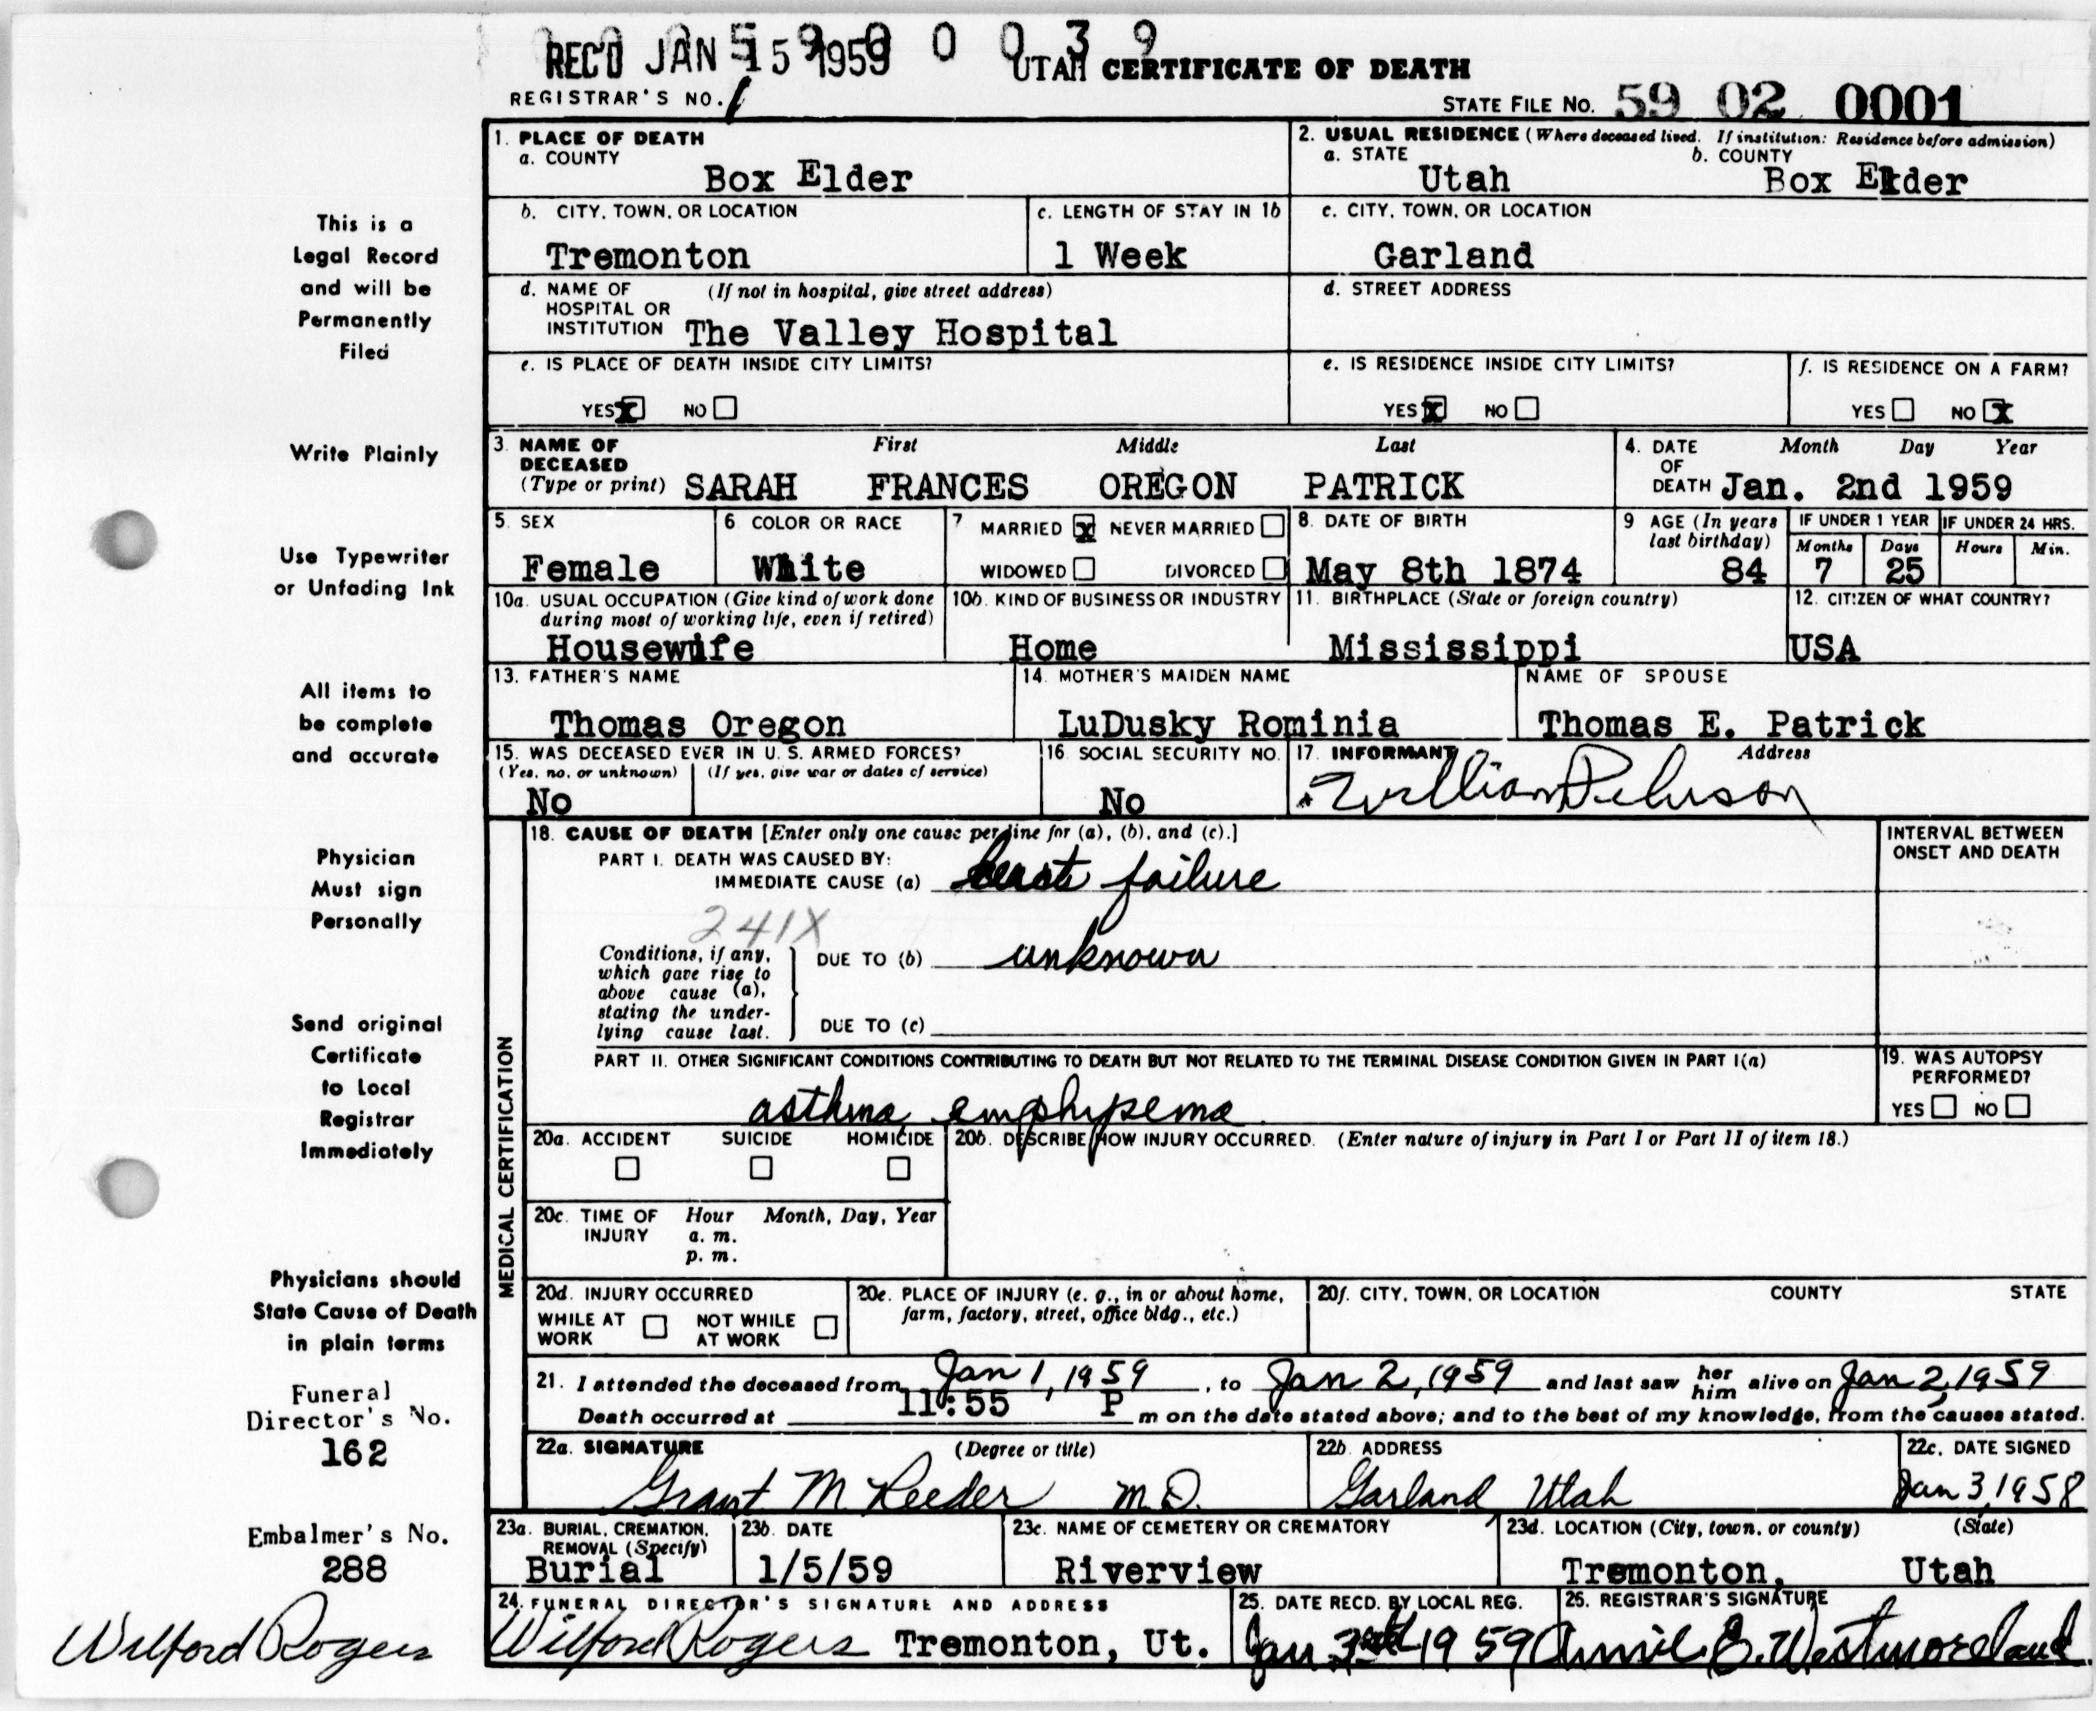 REC'D JAN 15 1959
5 9 0 0 0 3 9
UTAH CERTIFICATE OF DEATH
REGISTRAR'S NO. 1
STATE FILE NO. 59 02 0001
1. PLACE OF DEATH
a. COUNTY
Box Elder
2. USUAL RESIDENCE (Where deceased lived. If institution: Residence before admission)
a. STATE b. COUNTY
Utah Box Elder
b. CITY, TOWN, OR LOCATION
Tremonton
c. LENGTH OF STAY IN 1b
1 Week
c. CITY, TOWN, OR LOCATION
Garland
d. NAME OF (If not in hospital, give street address)
HOSPITAL OR
INSTITUTION The Valley Hospital
d. STREET ADDRESS
e. IS PLACE OF DEATH INSIDE CITY LIMITS?
YES X NO
e. IS RESIDENCE INSIDE CITY LIMITS?
YES X NO
f. IS RESIDENCE ON A FARM?
YES NO X
3. NAME OF DECEASED First Middle Last
(Type or print) SARAH FRANCES OREGON PATRICK
4. DATE OF DEATH Month Day Year
Jan. 2nd 1959
5. SEX
Female
6. COLOR OR RACE
White
7. MARRIED X NEVER MARRIED
WIDOWED DIVORCED
8. DATE OF BIRTH
May 8th 1874
9 AGE (In years last birthday)
84
IF UNDER 1 YEAR
Months Days
7 25
IF UNDER 24 HRS.
Hours Min.
10a. USUAL OCCUPATION (Give kind of work done
during most of working life, even if retired)
Housewife
10b. KIND OF BUSINESS OR INDUSTRY
Home
11. BIRTHPLACE (State or foreign country)
Mississippi
12. CITIZEN OF WHAT COUNTRY?
USA
13. FATHER'S NAME
Thomas Oregon
14. MOTHER'S MAIDEN NAME
LuDusky Rominia
NAME OF SPOUSE
Thomas E. Patrick
15. WAS DECEASED EVER IN U. S. ARMED FORCES?
(Yes, no, or unknown) (If yes, give war or dates of service)
No
16. SOCIAL SECURITY NO.
No
17. INFORMANT Address
William
18. CAUSE OF DEATH [Enter only one cause per line for (a), (b), and (c).]
PART I. DEATH WAS CAUSED BY:
IMMEDIATE CAUSE (a) heart failure
241X
Conditions, if any,
which gave rise to
above cause (a),
stating the under-
lying cause last.
DUE TO (b) unknown
DUE TO (c)
INTERVAL BETWEEN
ONSET AND DEATH
PART II. OTHER SIGNIFICANT CONDITIONS CONTRIBUTING TO DEATH BUT NOT RELATED TO THE TERMINAL DISEASE CONDITION GIVEN IN PART I(a)
asthma, emphysema
19. WAS AUTOPSY
PERFORMED?
YES NO
MEDICAL CERTIFICATION
20a. ACCIDENT SUICIDE HOMICIDE
20b. DESCRIBE HOW INJURY OCCURRED. (Enter nature of injury in Part I or Part II of item 18.)
20c. TIME OF INJURY Hour Month, Day, Year
a. m.
p. m.
20d. INJURY OCCURRED
WHILE AT WORK NOT WHILE AT WORK
20e. PLACE OF INJURY (e. g., in or about home,
farm, factory, street, office bldg., etc.)
20f. CITY, TOWN, OR LOCATION COUNTY STATE
21. I attended the deceased from Jan 1, 1959, to Jan 2, 1959 and last saw her him alive on Jan 2, 1959
Death occurred at 11:55 P m on the date stated above; and to the best of my knowledge, from the causes stated.
22a. SIGNATURE (Degree or title)
Grant M Reeder M.D.
22b. ADDRESS
Garland Utah
22c. DATE SIGNED
Jan 3, 1958
23a. BURIAL, CREMATION,
REMOVAL (Specify)
Burial
23b. DATE
1/5/59
23c. NAME OF CEMETERY OR CREMATORY
Riverview
23d. LOCATION (City, town, or county) (State)
Tremonton, Utah
24. FUNERAL DIRECTOR'S SIGNATURE AND ADDRESS
Wilford Rogers Tremonton, Ut.
25. DATE RECD. BY LOCAL REG.
Jan 3rd 1959
26. REGISTRAR'S SIGNATURE
Annie E. Westmoreland
This is a
Legal Record
and will be
Permanently
Filed
Write Plainly
Use Typewriter
or Unfading Ink
All items to
be complete
and accurate
Physician
Must sign
Personally
Send original
Certificate
to Local
Registrar
Immediately
Physicians should
State Cause of Death
in plain terms
Funeral
Director's No.
162
Embalmer's No.
288
Wilford Rogers